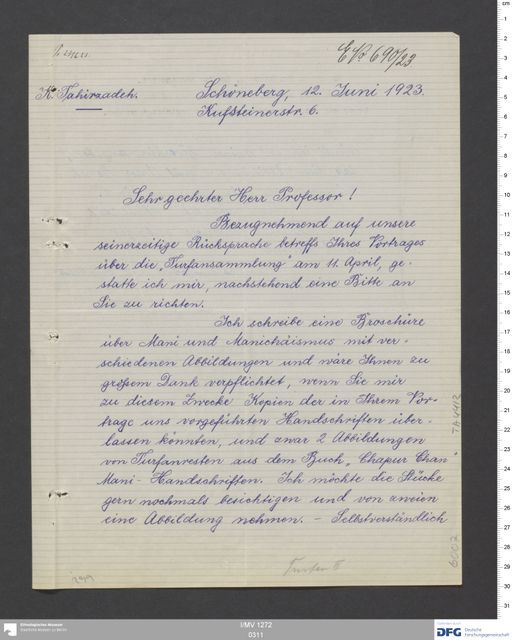 E No 690/23
K. Tahirzadeh.
Schöneberg, 12. Juni 1923.
Kufsteinerstr. 6.
Sehr geehrter Herr Professor!
Bezugnehmend auf unsere
seinerzeitige Rücksprache betreffs Ihres Vortrages
über die „Turfansammlung" am 11. April, ge-
statte ich mir, nachstehend eine Bitte an
Sie zu richten.
Ich schreibe eine Broschüre
über Mani und Manichäismus mit ver-
schiedenen Abbildungen und wäre Ihnen zu
großem Dank verpflichtet, wenn Sie mir
zu diesem Zwecke Kopien der in Ihrem Vor-
trage uns vorgeführten Handschriften über-
lassen könnten, und zwar 2 Abbildungen
von Turfanresten aus dem Buch „Chapur Chan"
Mani-Handschriften. Ich möchte die Stücke
gern nochmals besichtigen und von zweien
eine Abbildung nehmen. – Selbstverständlich
TA 4412
6002
Turfan II
I/MV 1272
0311
Ethnologisches Museum
Staatliche Museen zu Berlin
DFG Deutsche
Forschungsgemeinschaft